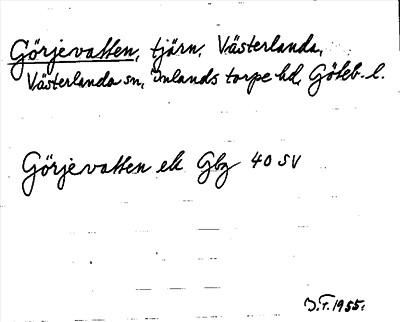 Görjevatten, tjärn, Västerlanda,
Västerlanda sn, Inlands torpe hd, Göteb. l.
Görjevatten ek Gbg 40 SV
J.T. 1955.